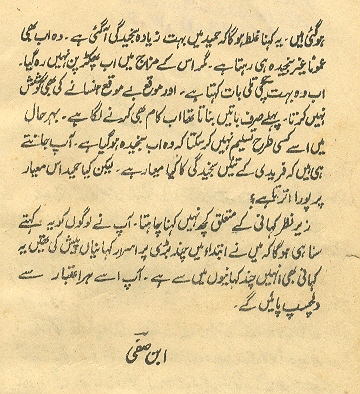 ہو گئی ہیں۔ یہ کہنا غلط ہوگا کہ حمید میں بہت زیادہ سنجیدگی آگئی ہے۔ وہ اب بھی
عموماً غیر سنجیدہ ہی رہتا ہے۔ مگر اس کے مزاج میں اب پھکڑ پن نہیں رہ گیا۔
اب وہ بہت جچی تلی بات کہتا ہے۔ اور موقع بے موقع ہنسانے کی بھی کوشش
نہیں کرتا۔ پہلے صرف باتیں بناتا تھا اب کام بھی کرنے لگا ہے۔ بہرحال
میں اسے کسی طرح تسلیم نہیں کر سکتا کہ وہ اب سنجیدہ ہو گیا ہے۔ آپ جانتے
ہی ہیں کہ فریدی کے تئیں سنجیدگی کا کیا معیار ہے۔ لیکن کیا حمید اس معیار
پر پورا اترتا ہے؟
زیر نظر کہانی کے متعلق کچھ نہیں کہنا چاہتا۔ آپ نے لوگوں کو یہ کہتے
سنا ہی ہوگا کہ میں نے ابتداء میں چند بڑی پر اسرار کہانیاں پیش کی تھیں یہ
کہانی بھی انہیں چند کہانیوں میں سے ہے۔ آپ اسے ہر اعتبار سے
دلچسپ پائیں گے۔
ابن صفی